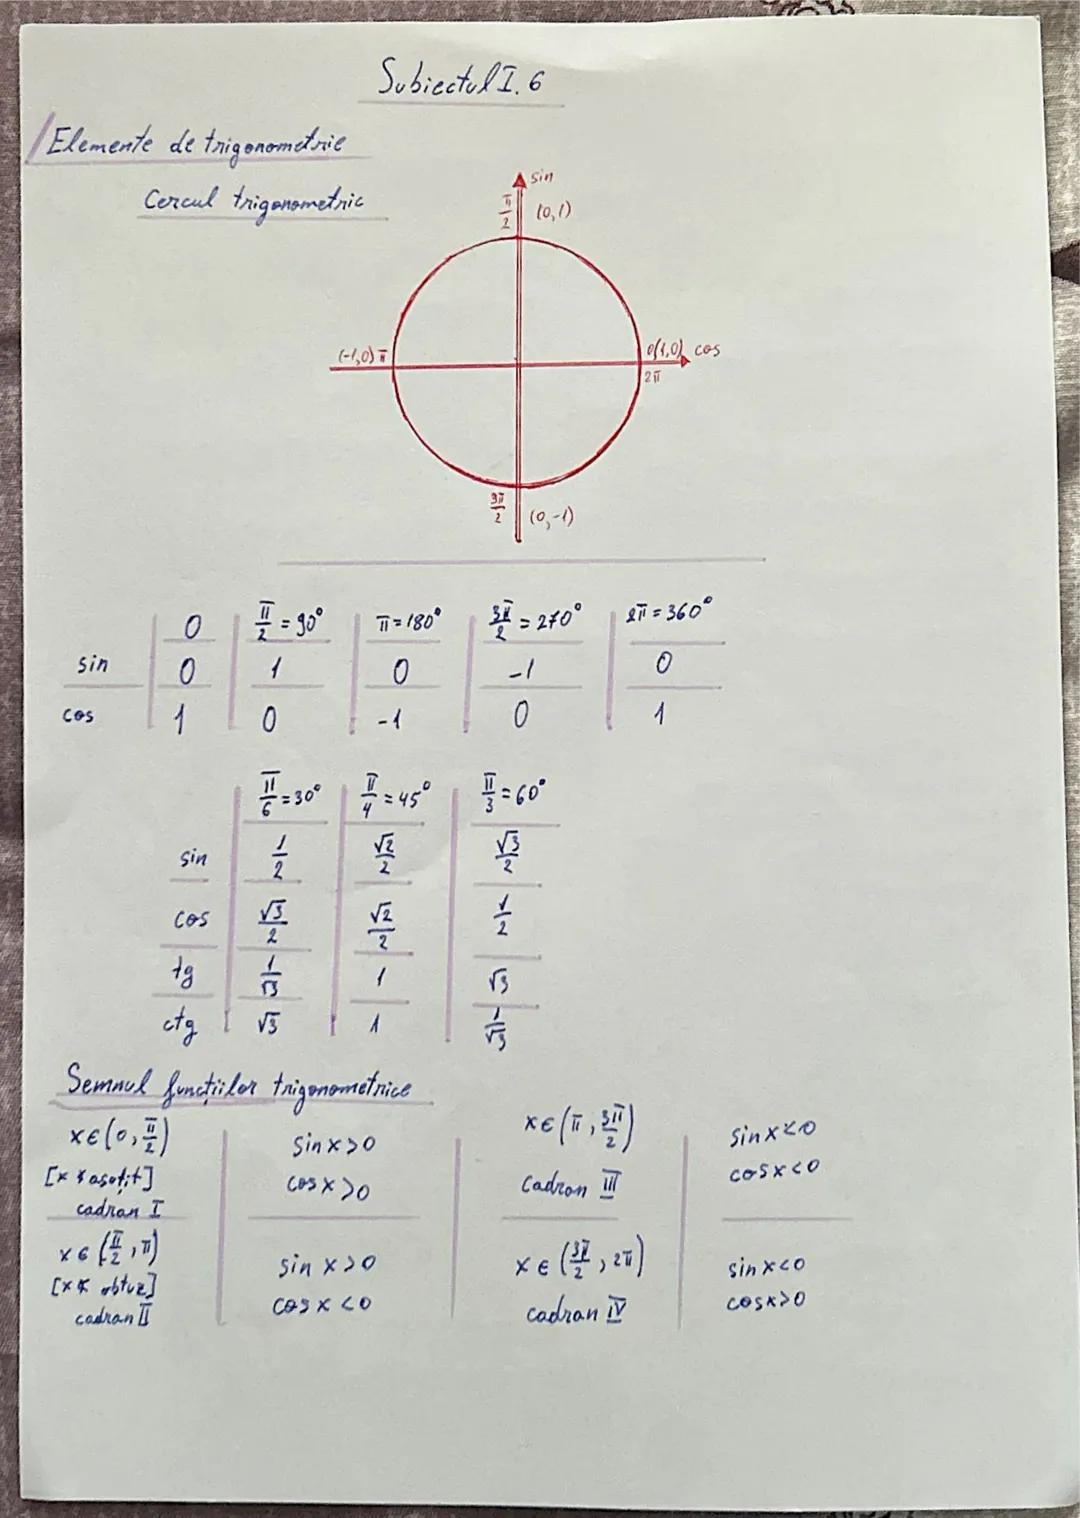 Subiectul I. 6
Elemente de trigonometrie
Cercul trigonometric
sin
π/2 (0,1)
(-1,0) π
0(1,0) cos
2π
3π/2 (0,-1)
0 π/2 = 90° π = 180° 3π/2 = 270° 2π = 360°
sin 0 1 0 -1 0
cos 1 0 -1 0 1
π/6 = 30° π/4 = 45° π/3 = 60°
sin 1/2 √2/2 √3/2
cos √3/2 √2/2 1/2
tg 1/√3 1 √3
ctg √3 1 1/√3
Semnul funcțiilor trigonometrice
x∈(0, π/2)
[x ∢ ascțit]
cadran I
sin x > 0
cos x > 0
x∈(π, 3π/2)
Cadran III
sin x < 0
cos x < 0
x ∈ (π/2, π)
[x ∢ obtuz]
cadran II
sin x > 0
cos x < 0
x ∈ (3π/2, 2π)
cadran IV
sin x < 0
cos x > 0